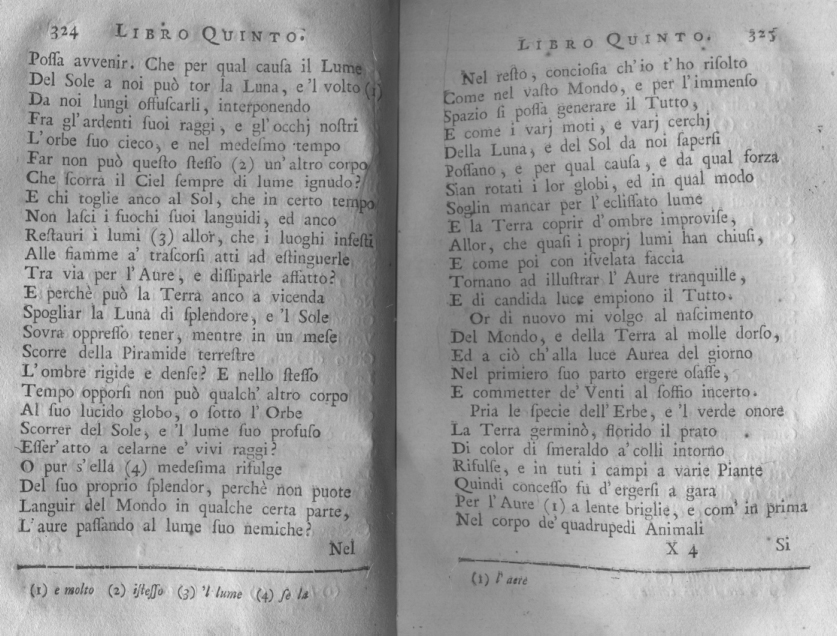 324 LIBRO QUINTO.
Poſſa avvenir. Che per qual cauſa il Lume
Del Sole a noi può tor la Luna, e 'l volto (1)
Da noi lungi offuſcarli, interponendo
Fra gl'ardenti ſuoi raggi, e gl'occhj noſtri
L'orbe ſuo cieco, e nel medeſmo tempo
Far non può queſto ſteſſo (2) un'altro corpo
Che ſcorra il Ciel ſempre di lume ignudo?
E chi toglie anco al Sol, che in certo tempo
Non laſci i fuochi ſuoi languidi, ed anco
Reſtauri i lumi (3) allor, che i luoghi infeſti
Alle fiamme a' traſcorſi atti ad eſtinguerle
Tra via per l'Aure, e diſſiparle affatto?
E perchè può la Terra anco a vicenda
Spogliar la Luna di ſplendore, e 'l Sole
Sovra oppreſſo tener, mentre in un meſe
Scorre della Piramide terreſtre
L'ombre rigide e denſe? E nello ſteſſo
Tempo opporſi non può qualch' altro corpo
Al ſuo lucido globo, o ſotto l' Orbe
Scorrer del Sole, e 'l lume ſuo profuſo
Eſſer' atto a celarne e' vivi raggi?
O pur s'ella (4) medeſima rifulge
Del ſuo proprio ſplendor, perchè non puote
Languir del Mondo in qualche certa parte,
L'aure paſſando al lume ſuo nemiche?
Nel
(1) e molto (2) iſteſſo (3) 'l lume (4) ſe la
LIBRO QUINTO. 325
Nel reſto, concioſia ch'io t'ho riſolto
Come nel vaſto Mondo, e per l'immenſo
Spazio ſi poſſa generare il Tutto,
E come i varj moti, e varj cerchj
Della Luna, e del Sol da noi ſaperſi
Poſſano, e per qual cauſa, e da qual forza
Sian rotati i lor globi, ed in qual modo
Soglin mancar per l'eccliſſato lume
E la Terra coprir d'ombre improviſe,
Allor, che quaſi i proprj lumi han chiuſi,
E come poi con iſvelata faccia
Tornano ad illuſtrar l' Aure tranquille,
E di candida luce empiono il Tutto.
Or di nuovo mi volgo al naſcimento
Del Mondo, e della Terra al molle dorſo,
Ed a ciò ch'alla luce Aurea del giorno
Nel primiero ſuo parto ergere oſaſſe,
E commetter de' Venti al ſoffio incerto.
Pria le ſpecie dell'Erbe, e 'l verde onore
La Terra germinò, florido il prato
Di color di ſmeraldo a'colli intorno
Rifulſe, e in tuti i campi a varie Piante
Quindi conceſſo fu d'ergerſi a gara
Per l'Aure (1) a lente briglie, e com' in prima
Nel corpo de'quadrupedi Animali
X 4 Si
(1) l' aure